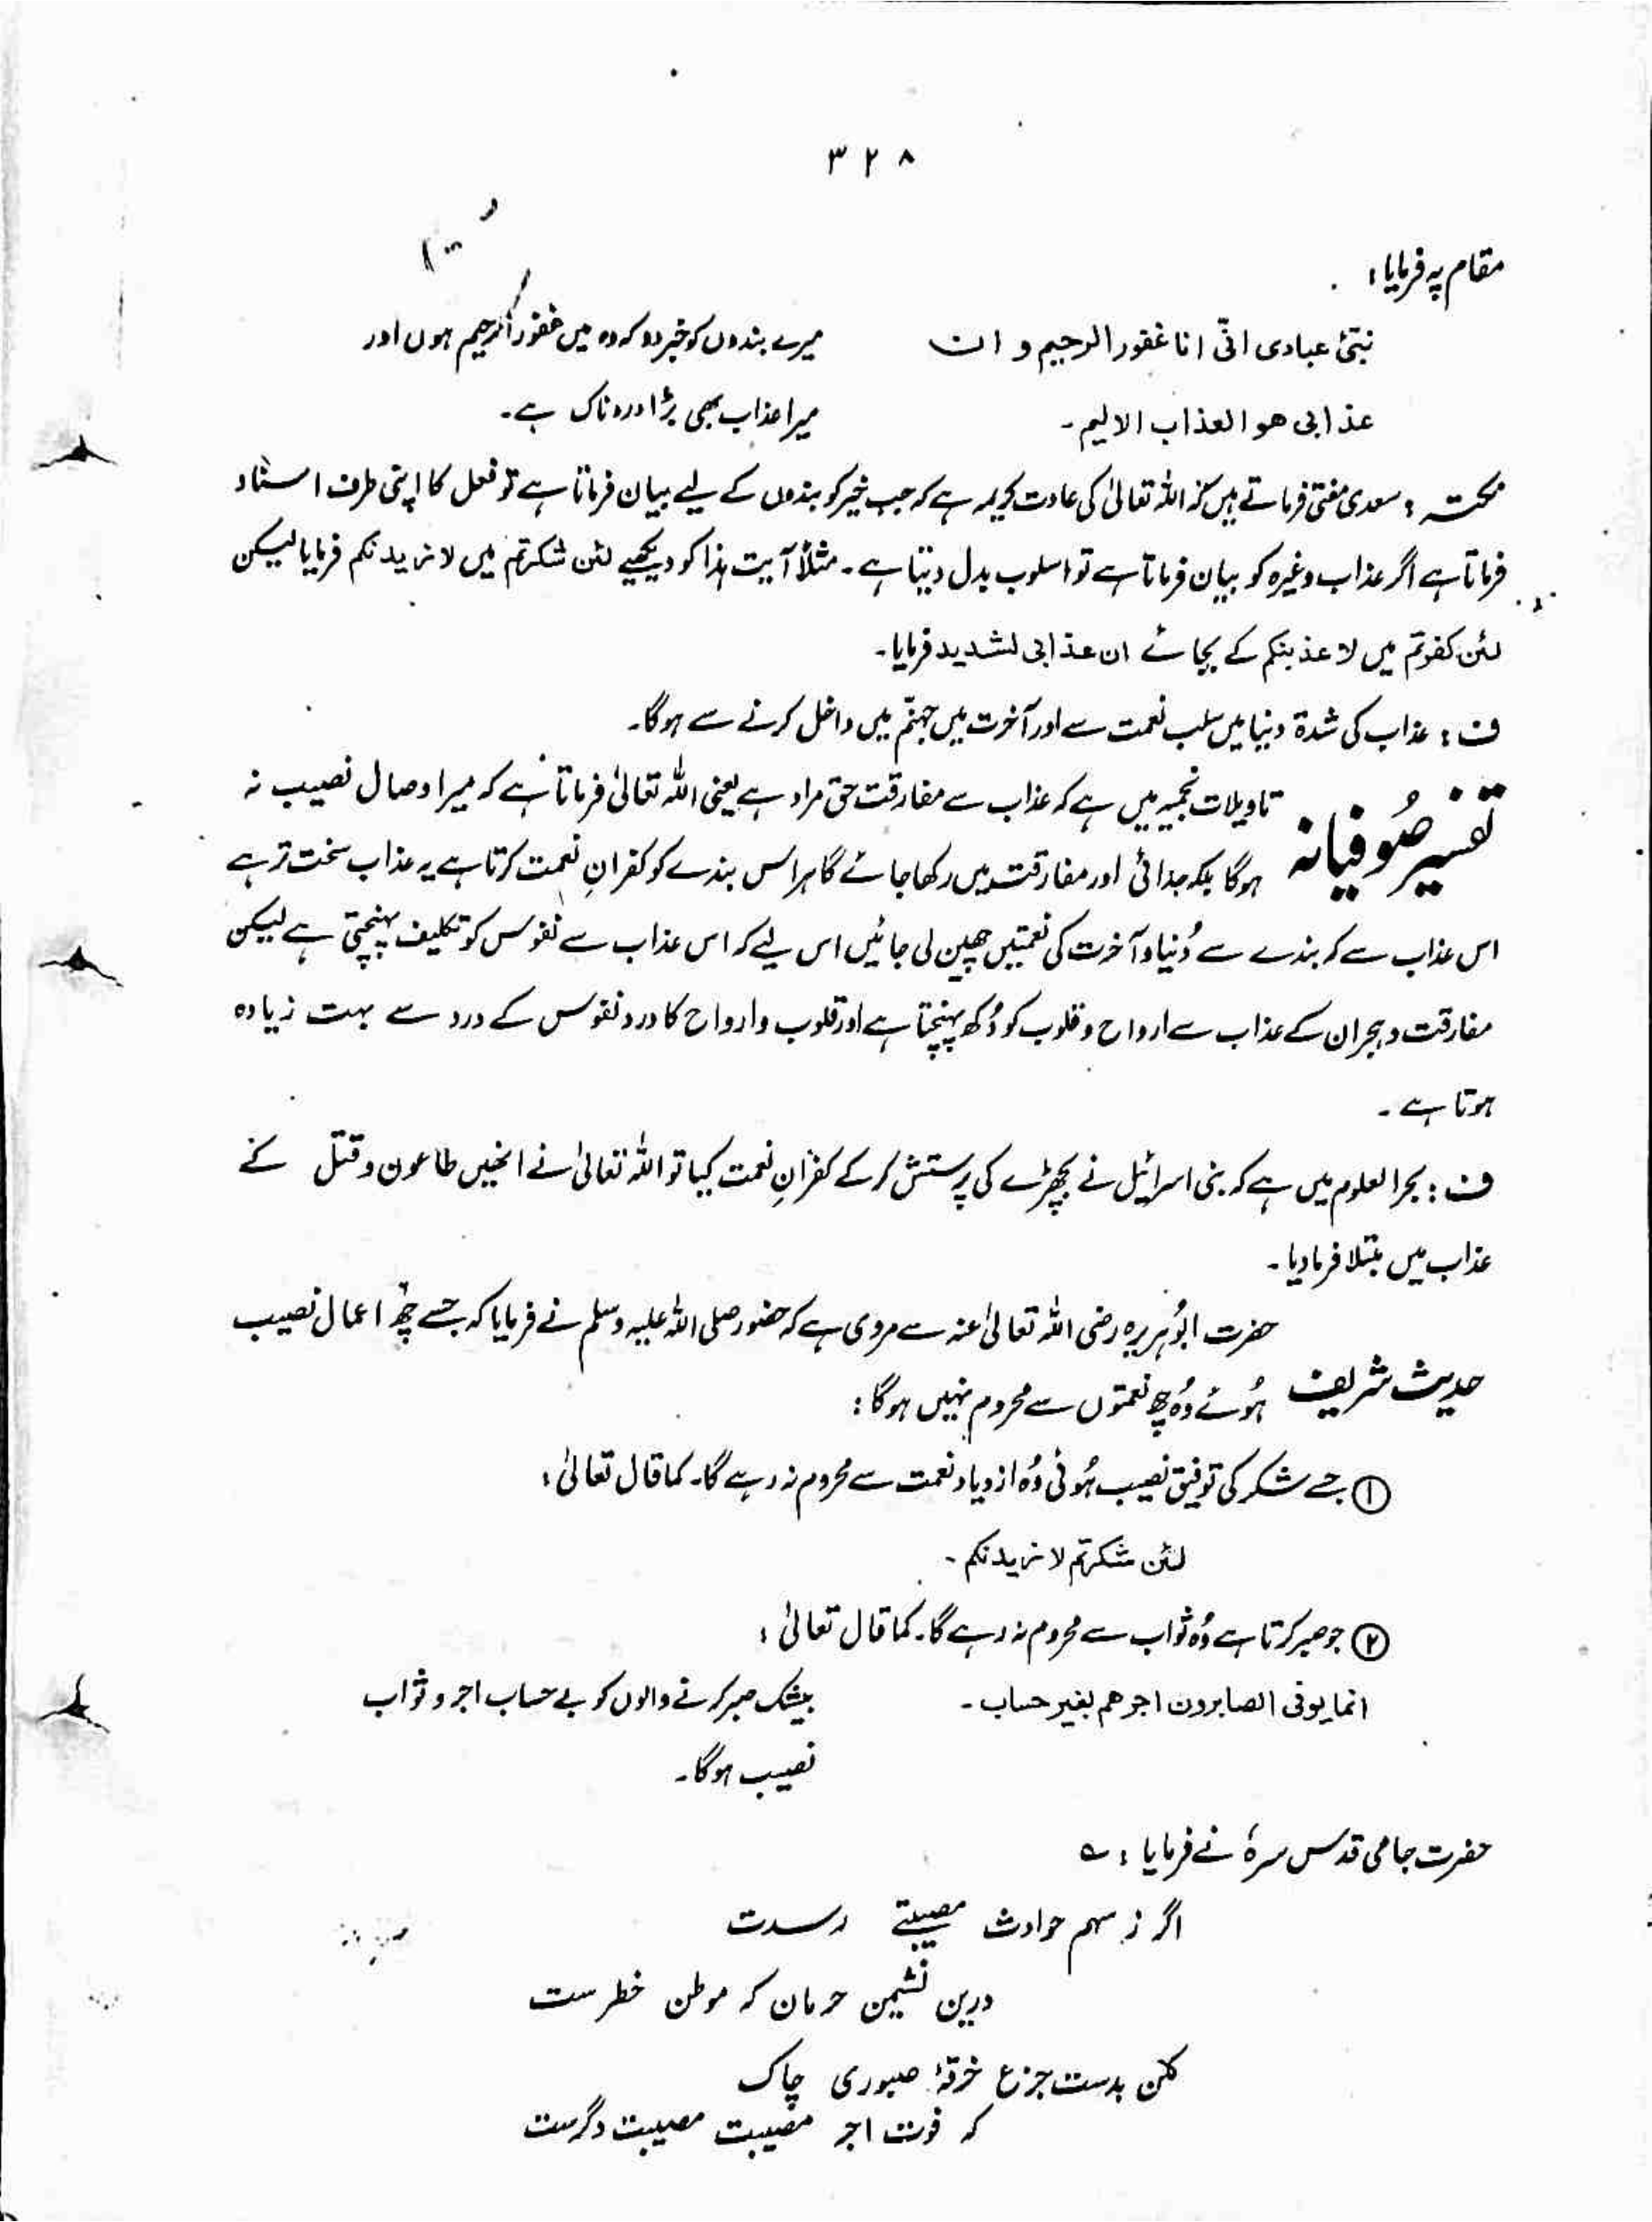 ۳۲۸
مقام پہ فرمایا :
نبّئ عبادی انّی انا غفور الرحیم و ان
میرے بندوں کو خبر دو کہ وہ میں غفور الرحیم ہوں اور
عذابی ھو العذاب الالیم ۔
میرا عذاب بھی بڑا دردناک ہے ۔
نکتہ : سعدی مفتی فرماتے ہیں کہ اللہ تعالیٰ کی عادت کریمہ ہے کہ جب خیر کو بندوں کے لیے بیان فرماتا ہے تو فعل کا اپنی طرف اسناد
فرماتا ہے اگر عذاب وغیرہ کو بیان فرماتا ہے تو اسلوب بدل دیتا ہے ۔ مثلاً آیت ہذا کو دیکھیے لئن شکرتم میں لازیدنکم فرمایا لیکن
لئن کفرتم میں لاعذبنکم کے بجائے ان عذابی لشدید فرمایا ۔
ف : عذاب کی شدۃ دنیا میں سلب نعمت سے اور آخرت میں جہنّم میں داخل کرنے سے ہوگا ۔
تفسیر صُوفیانہ
تاویلات نجمیہ میں ہے کہ عذاب سے مفارقت حق مراد ہے یعنی اللہ تعالیٰ فرماتا ہے کہ میرا وصال نصیب نہ
ہوگا بلکہ جدائی اور مفارقت میں رکھا جائے گا ہر اس بندے کو کفرانِ نعمت کرتا ہے یہ عذاب سخت تر ہے
اس عذاب سے کہ بندے سے دُنیا و آخرت کی نعمتیں چھین لی جائیں اس لیے کہ اس عذاب سے نفوس کو تکلیف پہنچتی ہے لیکن
مفارقت و ہجران کے عذاب سے ارواح و قلوب کو دُکھ پہنچتا ہے اور قلوب و ارواح کا درد نفوس کے درد سے بہت زیادہ
ہوتا ہے ۔
ف : بحر العلوم میں ہے کہ بنی اسرائیل نے بچھڑے کی پرستش کر کے کفرانِ نعمت کیا تو اللہ تعالیٰ نے انھیں طاعون و قتل کے
عذاب میں مبتلا فرما دیا ۔
حدیث شریف
حضرت ابُو ہریرہ رضی اللہ تعالیٰ عنہ سے مروی ہے کہ حضور صلی اللہ علیہ وسلم نے فرمایا کہ جسے چھ اعمال نصیب
ہُوئے وُہ چھ نعمتوں سے محروم نہیں ہوگا :
① جسے شکر کی توفیق نصیب ہُوئی وُہ ازدیاد نعمت سے محروم نہ رہے گا ۔ کما قال تعالیٰ :
لئن شکرتم لازیدنکم ۔
② جو صبر کرتا ہے وُہ ثواب سے محروم نہ رہے گا ۔ کما قال تعالیٰ :
انما یوفی الصابرون اجرھم بغیر حساب ۔
بیشک صبر کرنے والوں کو بے حساب اجر و ثواب
نصیب ہوگا ۔
حضرت جامی قدس سرہٗ نے فرمایا : ؎
اگر ز سہم حوادث مصیبتے رسدت
درین نشیمن حرمان کہ موطن خطرست
مکن بدست جزع خرقۂ صبوری چاک
کہ فوت اجر مصیبت مصیبت دگرست